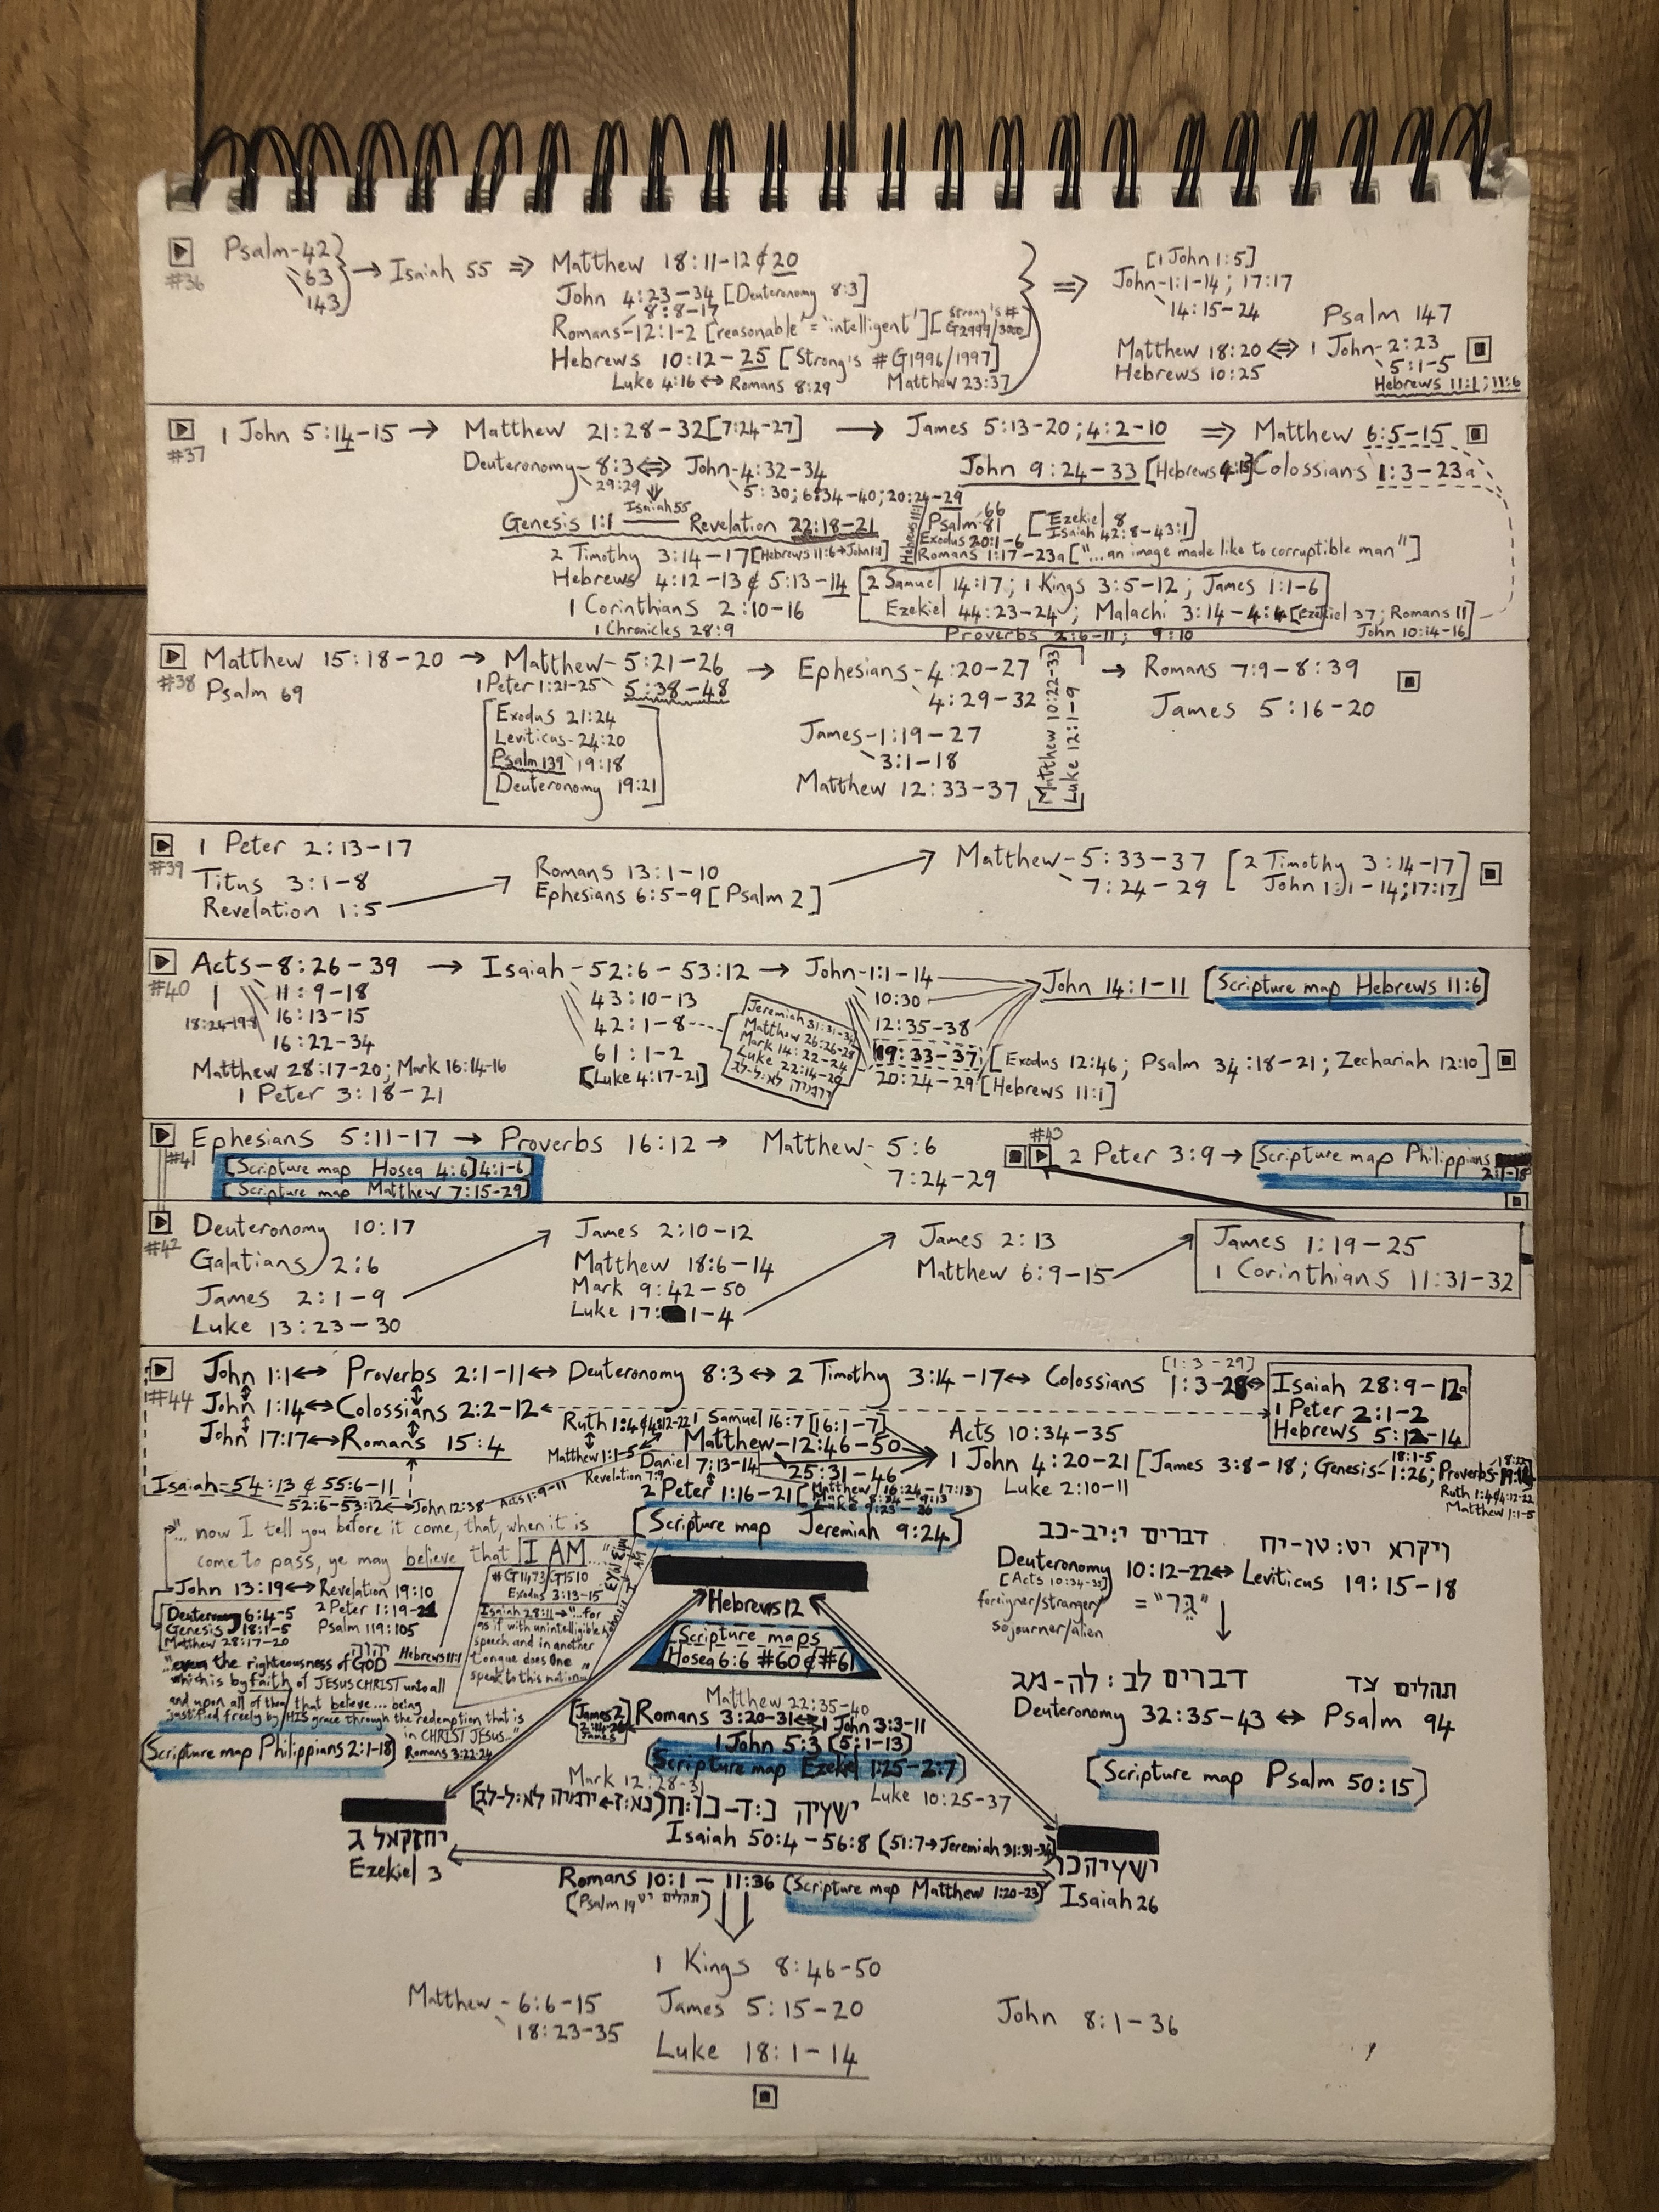 #36
Psalm-42
63
143
→ Isaiah 55 ⇒
Matthew 18:11-12 ¢ 20
John 4:23-34 [Deuteronomy 8:3]
8:8-17
Romans-12:1-2 [reasonable' = 'intelligent'] [Strong's # G2999/3000]
Hebrews 10:12-25 [Strong's #G1996/1997]
Luke 4:16 ↔ Romans 8:29 Matthew 23:37
⇒
[1 John 1:5]
John-1:1-14; 17:17
14:15-24
Psalm 147
Matthew 18:20 ⇔ 1 John-2:23
Hebrews 10:25 5:1-5
Hebrews 11:1; 11:6
#37
1 John 5:14-15 → Matthew 21:28-32 [7:24-27] → James 5:13-20; 4:2-10 ⇒ Matthew 6:5-15
Deuteronomy-8:3 ⇔ John-4:32-34
29:29 5:30; 6:34-40; 20:24-29
John 9:24-33 Colossians 1:3-23a
Isaiah 55
Genesis 1:1 — Revelation 22:18-21
Hebrews 11:1
66
Psalm-81
Exodus 20:1-6
[Ezekiel 8
Isaiah 42:8-43:1]
Romans 1:17-23a ["...an image made like to corruptible man"]
2 Timothy 3:14-17 [Hebrews 11:6→John 1:1]
Hebrews 4:12-13 ¢ 5:13-14 [2 Samuel 14:17; 1 Kings 3:5-12; James 1:1-6
1 Corinthians 2:10-16 Ezekiel 44:23-24; Malachi 3:14-4:4 [Ezekiel 37; Romans 11
1 Chronicles 28:9 Proverbs 2:6-11; 9:10 John 10:14-16]
#38
Matthew 15:18-20 → Matthew-5:21-26 → Ephesians-4:20-27 → Romans 7:9-8:39
Psalm 69 1 Peter 1:21-25 5:38-48 4:29-32 James 5:16-20
[Exodus 21:24
Leviticus-24:20
Psalm 139 19:18
Deuteronomy 19:21]
James-1:19-27
3:1-18
Matthew 12:33-37
[Matthew 10:22-33
Luke 12:1-9]
#39
1 Peter 2:13-17
Titus 3:1-8
Revelation 1:5
Romans 13:1-10
Ephesians 6:5-9 [Psalm 2]
Matthew-5:33-37 [2 Timothy 3:14-17
7:24-29 John 1:1-14; 17:17]
#40
Acts-8:26-39 → Isaiah-52:6-53:12 → John-1:1-14
11:9-18
18:24-19:8
16:13-15
16:22-34
Matthew 28:17-20; Mark 16:14-16
1 Peter 3:18-21
43:10-13
42:1-8
61:1-2
[Luke 4:17-21]
[Jeremiah 31:31-34
Matthew 26:26-28
Mark 14:22-24
Luke 22:14-20
ירמיה לא:ל-לב]
10:30
12:35-38
19:33-37
20:24-29 [Hebrews 11:1]
John 14:1-11 [Scripture map Hebrews 11:6]
[Exodus 12:46; Psalm 34:18-21; Zechariah 12:10]
#41
Ephesians 5:11-17 → Proverbs 16:12 → Matthew-5:6
7:24-29
[Scripture map Hosea 4:6] 4:1-6]
[Scripture map Matthew 7:15-29]
#43
2 Peter 3:9 → [Scripture map Philippians
2:1-18
#42
Deuteronomy 10:17
Galatians 2:6
James 2:1-9
Luke 13:23-30
James 2:10-12
Matthew 18:6-14
Mark 9:42-50
Luke 17:1-4
James 2:13
Matthew 6:9-15
James 1:19-25
1 Corinthians 11:31-32
#44
John 1:1 ↔ Proverbs 2:1-11 ↔ Deuteronomy 8:3 ↔ 2 Timothy 3:14-17 ↔ Colossians 1:3-28 ↔
[1:3-29]
Isaiah 28:9-12a
1 Peter 2:1-2
Hebrews 5:12-14
John 1:14 ↔ Colossians 2:2-12
John 17:17 ↔ Romans 15:4
Ruth 1:4 ¢ 4:12-22 1 Samuel 16:7 [16:1-7]
Matthew 1:1-5 Matthew-12:46-50
Daniel 7:13-14 25:31-46
Revelation 7:9
2 Peter 1:16-21 [Matthew 16:24-17:13
Mark 8:34-9:13
Luke 9:23-36
Acts 10:34-35
1 John 4:20-21 [James 3:8-18; Genesis-1:26; Proverbs
18:1-5
Luke 2:10-11
Ruth 1:4 ¢ 4:12-22
Matthew 1:1-5
Isaiah-54:13 ¢ 55:6-11
52:6-53:12 ↔ John 12:38 Acts 1:9-11
[Scripture map Jeremiah 9:24]
"... now I tell you before it come, that, when it is
come to pass, ye may believe that I AM..."
John 13:19 ↔ Revelation 19:10
2 Peter 1:19-21
Psalm 119:105
Deuteronomy 6:4-5
Genesis 18:1-5
Matthew 28:17-20
#G1473/G1510
Exodus 3:13-15
Isaiah 28:11 → "...for
as if with unintelligible
speech and in another
tongue does One
speak to this nation"
יהוה Hebrews 11:1
"...even the righteousness of GOD
which is by faith of JESUS CHRIST unto all
and upon all of them that believe... being
justified freely by HIS grace through the redemption that is
in CHRIST JESUS..."
Romans 3:22-24
[Scripture map Philippians 2:1-18]
Hebrews 12
[Scripture maps
Hosea 6:6 #60 ¢ #61]
Matthew 22:35-40
Romans 3:20-31 ↔ 1 John 3:3-11
1 John 5:3 (5:1-13)
[Scripture map Ezekiel 1:25-2:7]
Mark 12:28-31
Luke 10:25-37
Isaiah 50:4-56:8 [51:7→Jeremiah 31:31-34]
יחזקאל ג
Ezekiel 3
ישעיה כו
Isaiah 26
Romans 10:1 - 11:36 [Scripture map Matthew 1:20-23]
[Psalm 19 תהלים יט]
דברים י:יב-כב ויקרא יט:טו-יח
Deuteronomy 10:12-22 ↔ Leviticus 19:15-18
[Acts 10:34-35]
foreigner/stranger/
sojourner/alien
= "גֵּר"
דברים לב:לה-מג תהלים צד
Deuteronomy 32:35-43 ↔ Psalm 94
[Scripture map Psalm 50:15]
1 Kings 8:46-50
Matthew-6:6-15 James 5:15-20 John 8:1-36
18:23-35
Luke 18:1-14